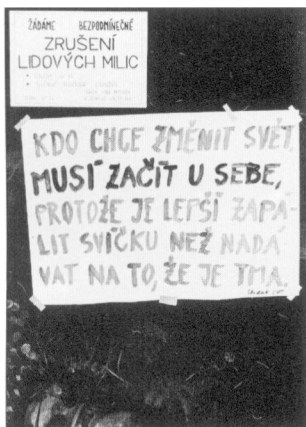 ŽÁDÁME BEZPODMÍNEČNĚ
ZRUŠENÍ
LIDOVÝCH MILIC
KDO CHCE ZMĚNIT SVĚT,
MUSÍ ZAČÍT U SEBE,
PROTOŽE JE LEPŠÍ ZAPÁ-
LIT SVÍČKU NEŽ NADÁ
VAT NA TO, ŽE JE TMA.